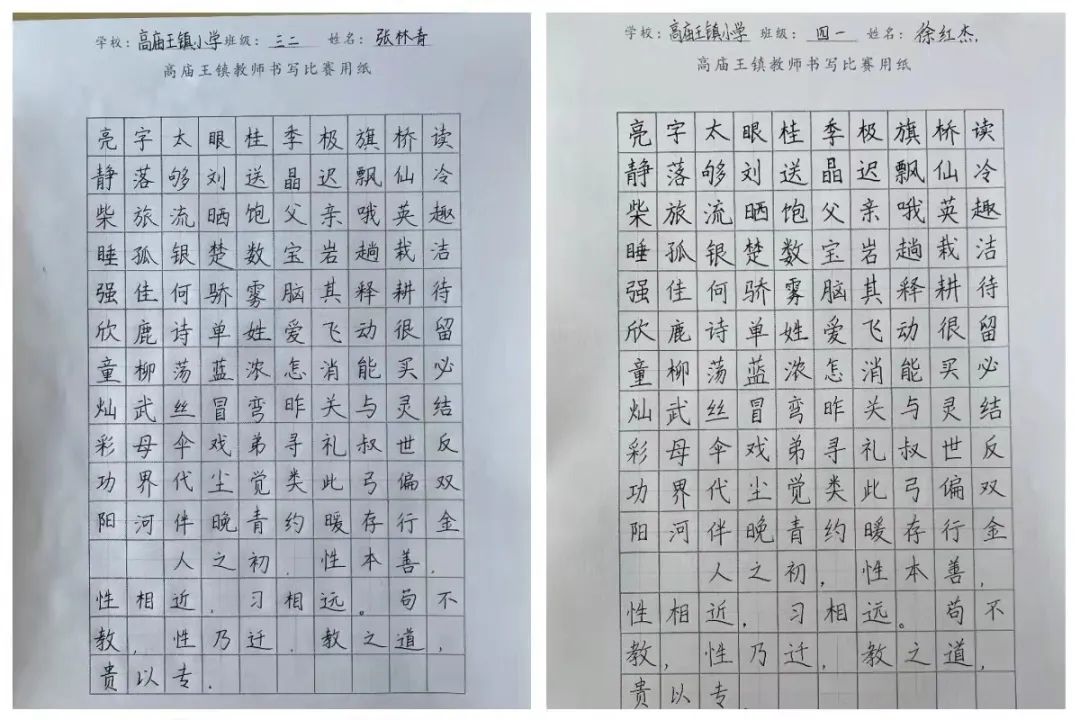 学校：高庙王镇小学 班级：三二 姓名：张林青
高庙王镇教师书写比赛用纸
亮字太眼桂季极旗桥读
静落够刘送晶迟飘仙冷
柴旅流晒饱父亲哦英趣
睡孤银楚数宝岩趟栽洁
强佳何骄雾脑其释耕待
欣鹿诗单姓爱飞动很留
童柳荡蓝浓怎消能买必
灿武丝冒弯昨关与灵结
彩母伞戏弟寻礼叔世反
功界代尘觉类此弓偏双
阳河伴晚青约暖存行金
人之初，性本善，
性相近，习相远。苟不
教，性乃迁，教之道，
贵以专。
学校：高庙王镇小学 班级：四一 姓名：徐红杰
高庙王镇教师书写比赛用纸
亮字太眼桂季极旗桥读
静落够刘送晶迟飘仙冷
柴旅流晒饱父亲哦英趣
睡孤银楚数宝岩趟栽洁
强佳何骄雾脑其释耕待
欣鹿诗单姓爱飞动很留
童柳荡蓝浓怎消能买必
灿武丝冒弯昨关与灵结
彩母伞戏弟寻礼叔世反
功界代尘觉类此弓偏双
阳河伴晚青约暖存行金
人之初，性本善，
性相近，习相远。苟不
教，性乃迁，教之道，
贵以专